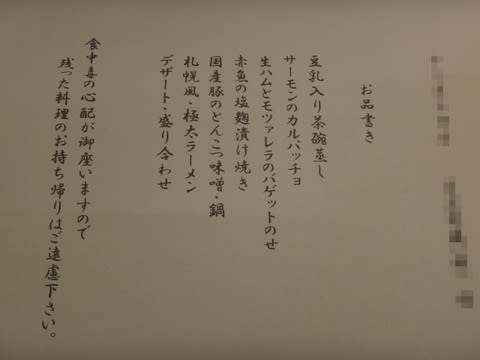 お品書き
豆乳入り茶碗蒸し
サーモンのカルパッチョ
生ハムとモツァレラのバゲットのせ
赤魚の塩麹漬け焼き
国産豚のどんこつ味噌・鍋
札幌風・極太ラーメン
デザート・盛り合わせ
食中毒の心配が御座いますので
残った料理のお持ち帰りはご遠慮下さい。